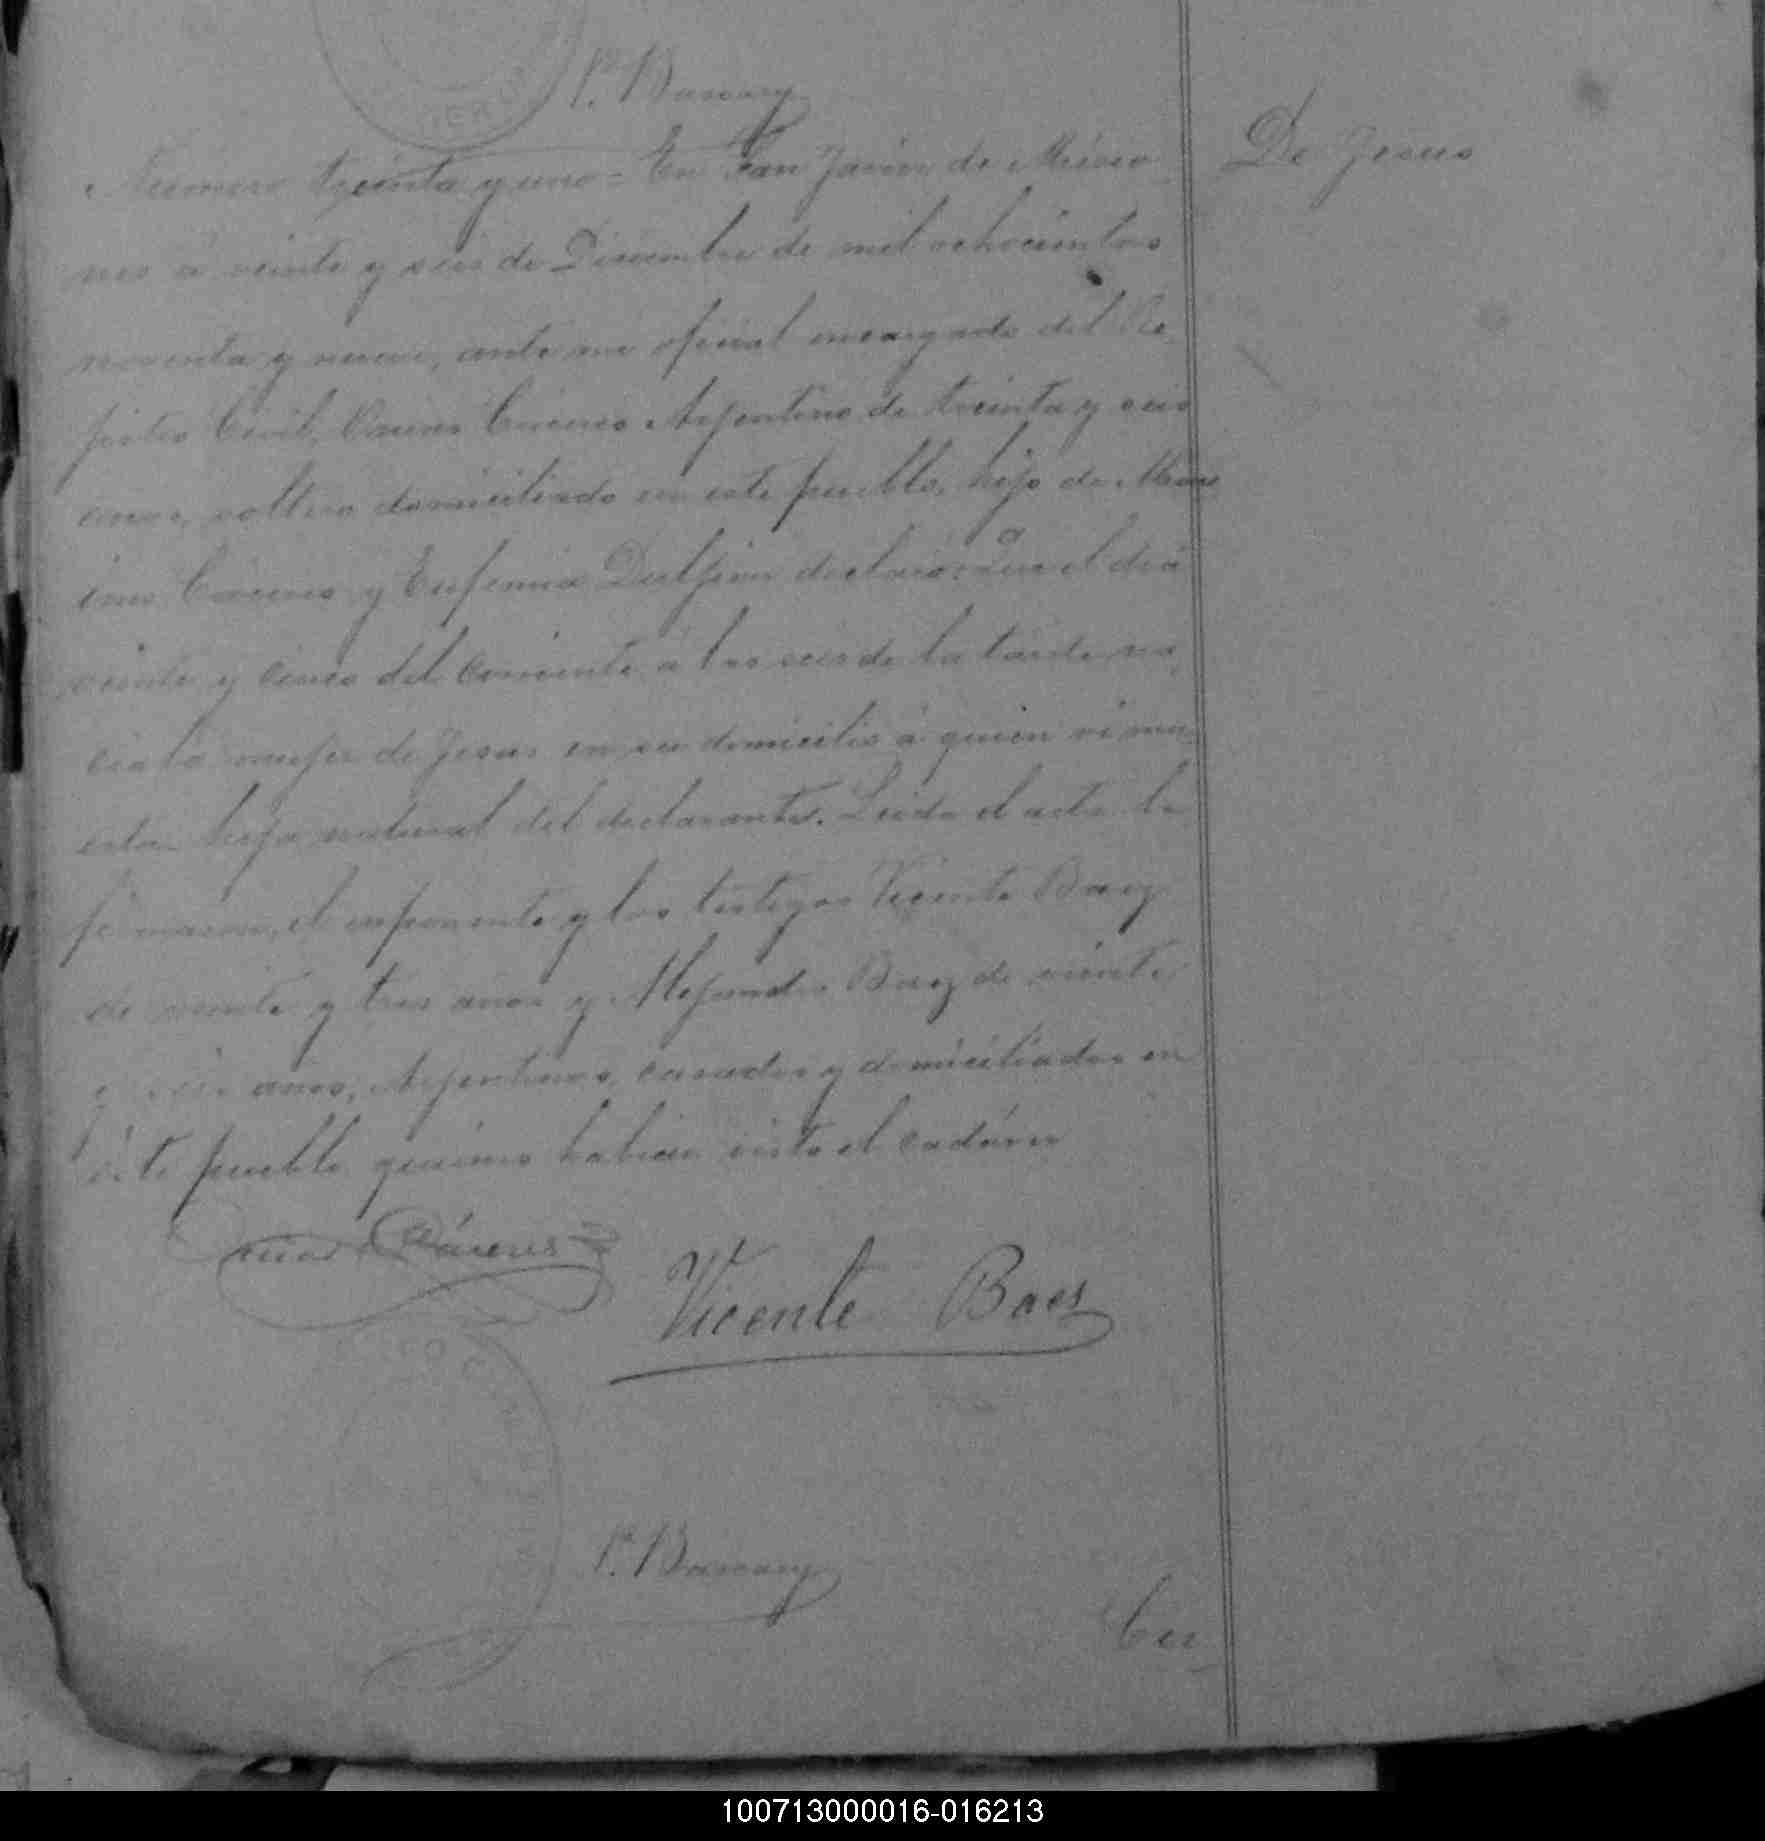 P. Bascary
De Jesus
Número treinta y uno = En San Javier de Misio
nes á veinte y seis de Diciembre de mil ochocientos
noventa y nueve, ante mi oficial encargado del Re
jistro Civil, Cáceres Argentino de treinta y seis
años, soltero domiciliado en este pueblo, hijo de
Cáceres y Eufemia declaró: Que el dia
veinte y cinco del corriente á las seis de la tarde na
ció la mujer de Jesus en su domicilio á quien ví mu
erta hija natural del declarante. Leida el acta la
firmaron, el esponente y los testigos Vicente Baez
de veinte y tres años y Alejandro Baez de veinte
y seis años, Argentinos, casados y domiciliados en
este pueblo quienes habian visto el cadáver
Cáceres
Vicente Baes
P. Bascary
100713000016-016213